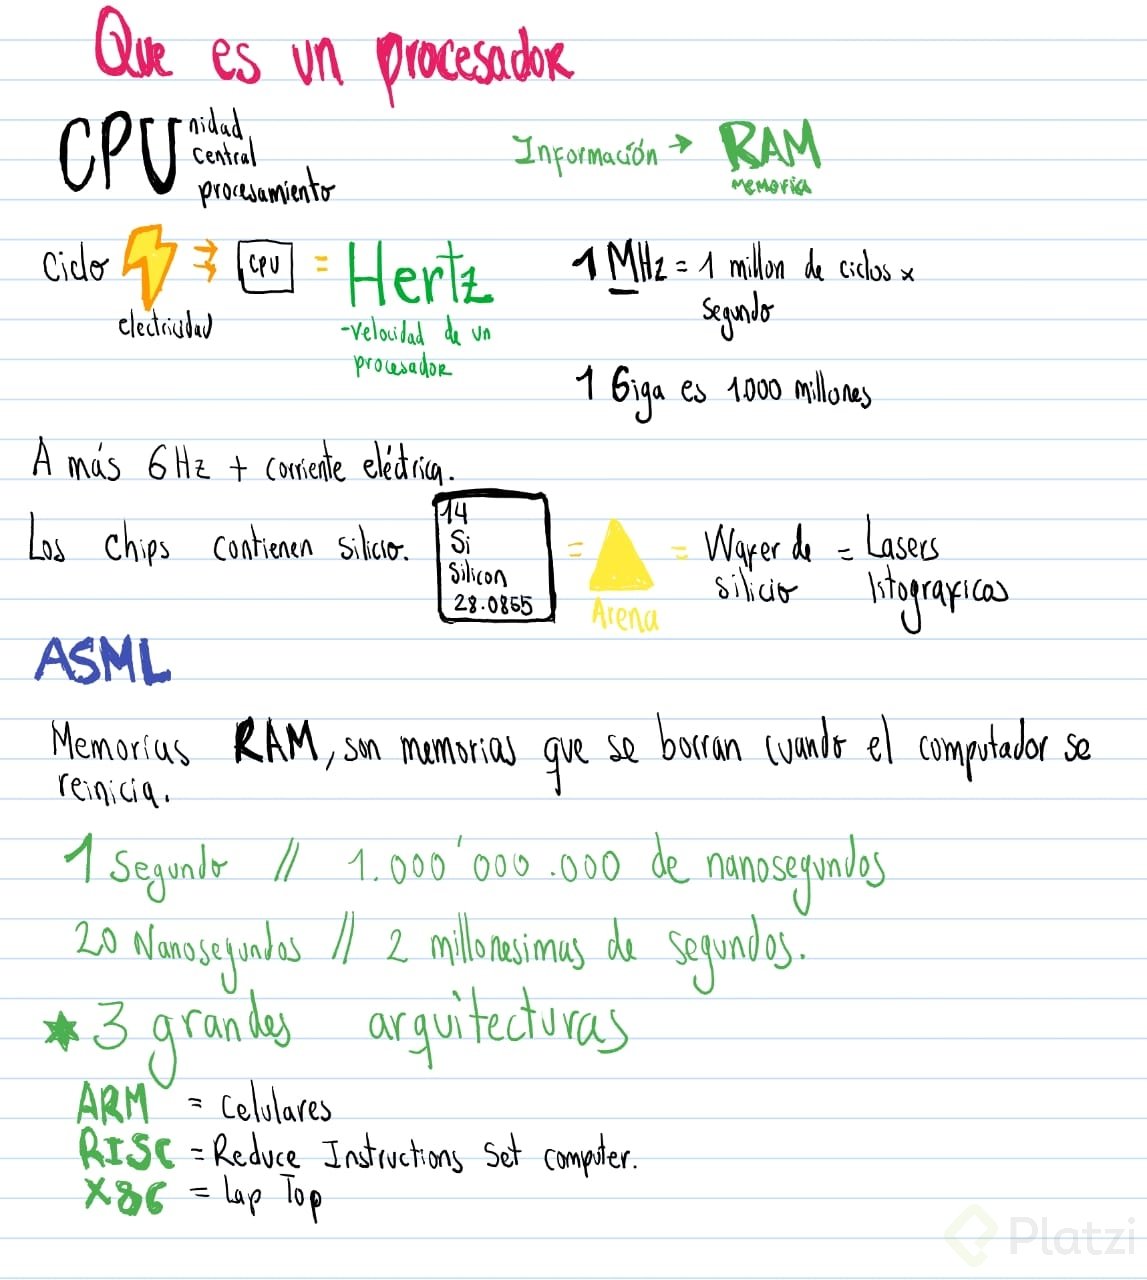 Que es un procesador
CPU nidad
central
procesamiento
Información → RAM
memoria
Ciclo CPU = Hertz
electricidad
-velocidad de un
procesador
1 MHz = 1 millon de ciclos x
segundo
1 Giga es 1.000 millones
A más GHz + corriente eléctrica.
Los chips contienen silicio.
14
Si
Silicon
28.0855
= Arena
= Wafer de
silicio
= Lasers
litograficos
ASML
Memorias RAM, son memorias que se borran cuando el computador se
reinicia.
1 Segundo // 1.000'000.000 de nanosegundos
20 Nanosegundos // 2 millonesimas de segundos.
3 grandes arquitecturas
ARM = Celulares
RISC = Reduce Instructions Set computer.
X86 = Lap Top
Platzi